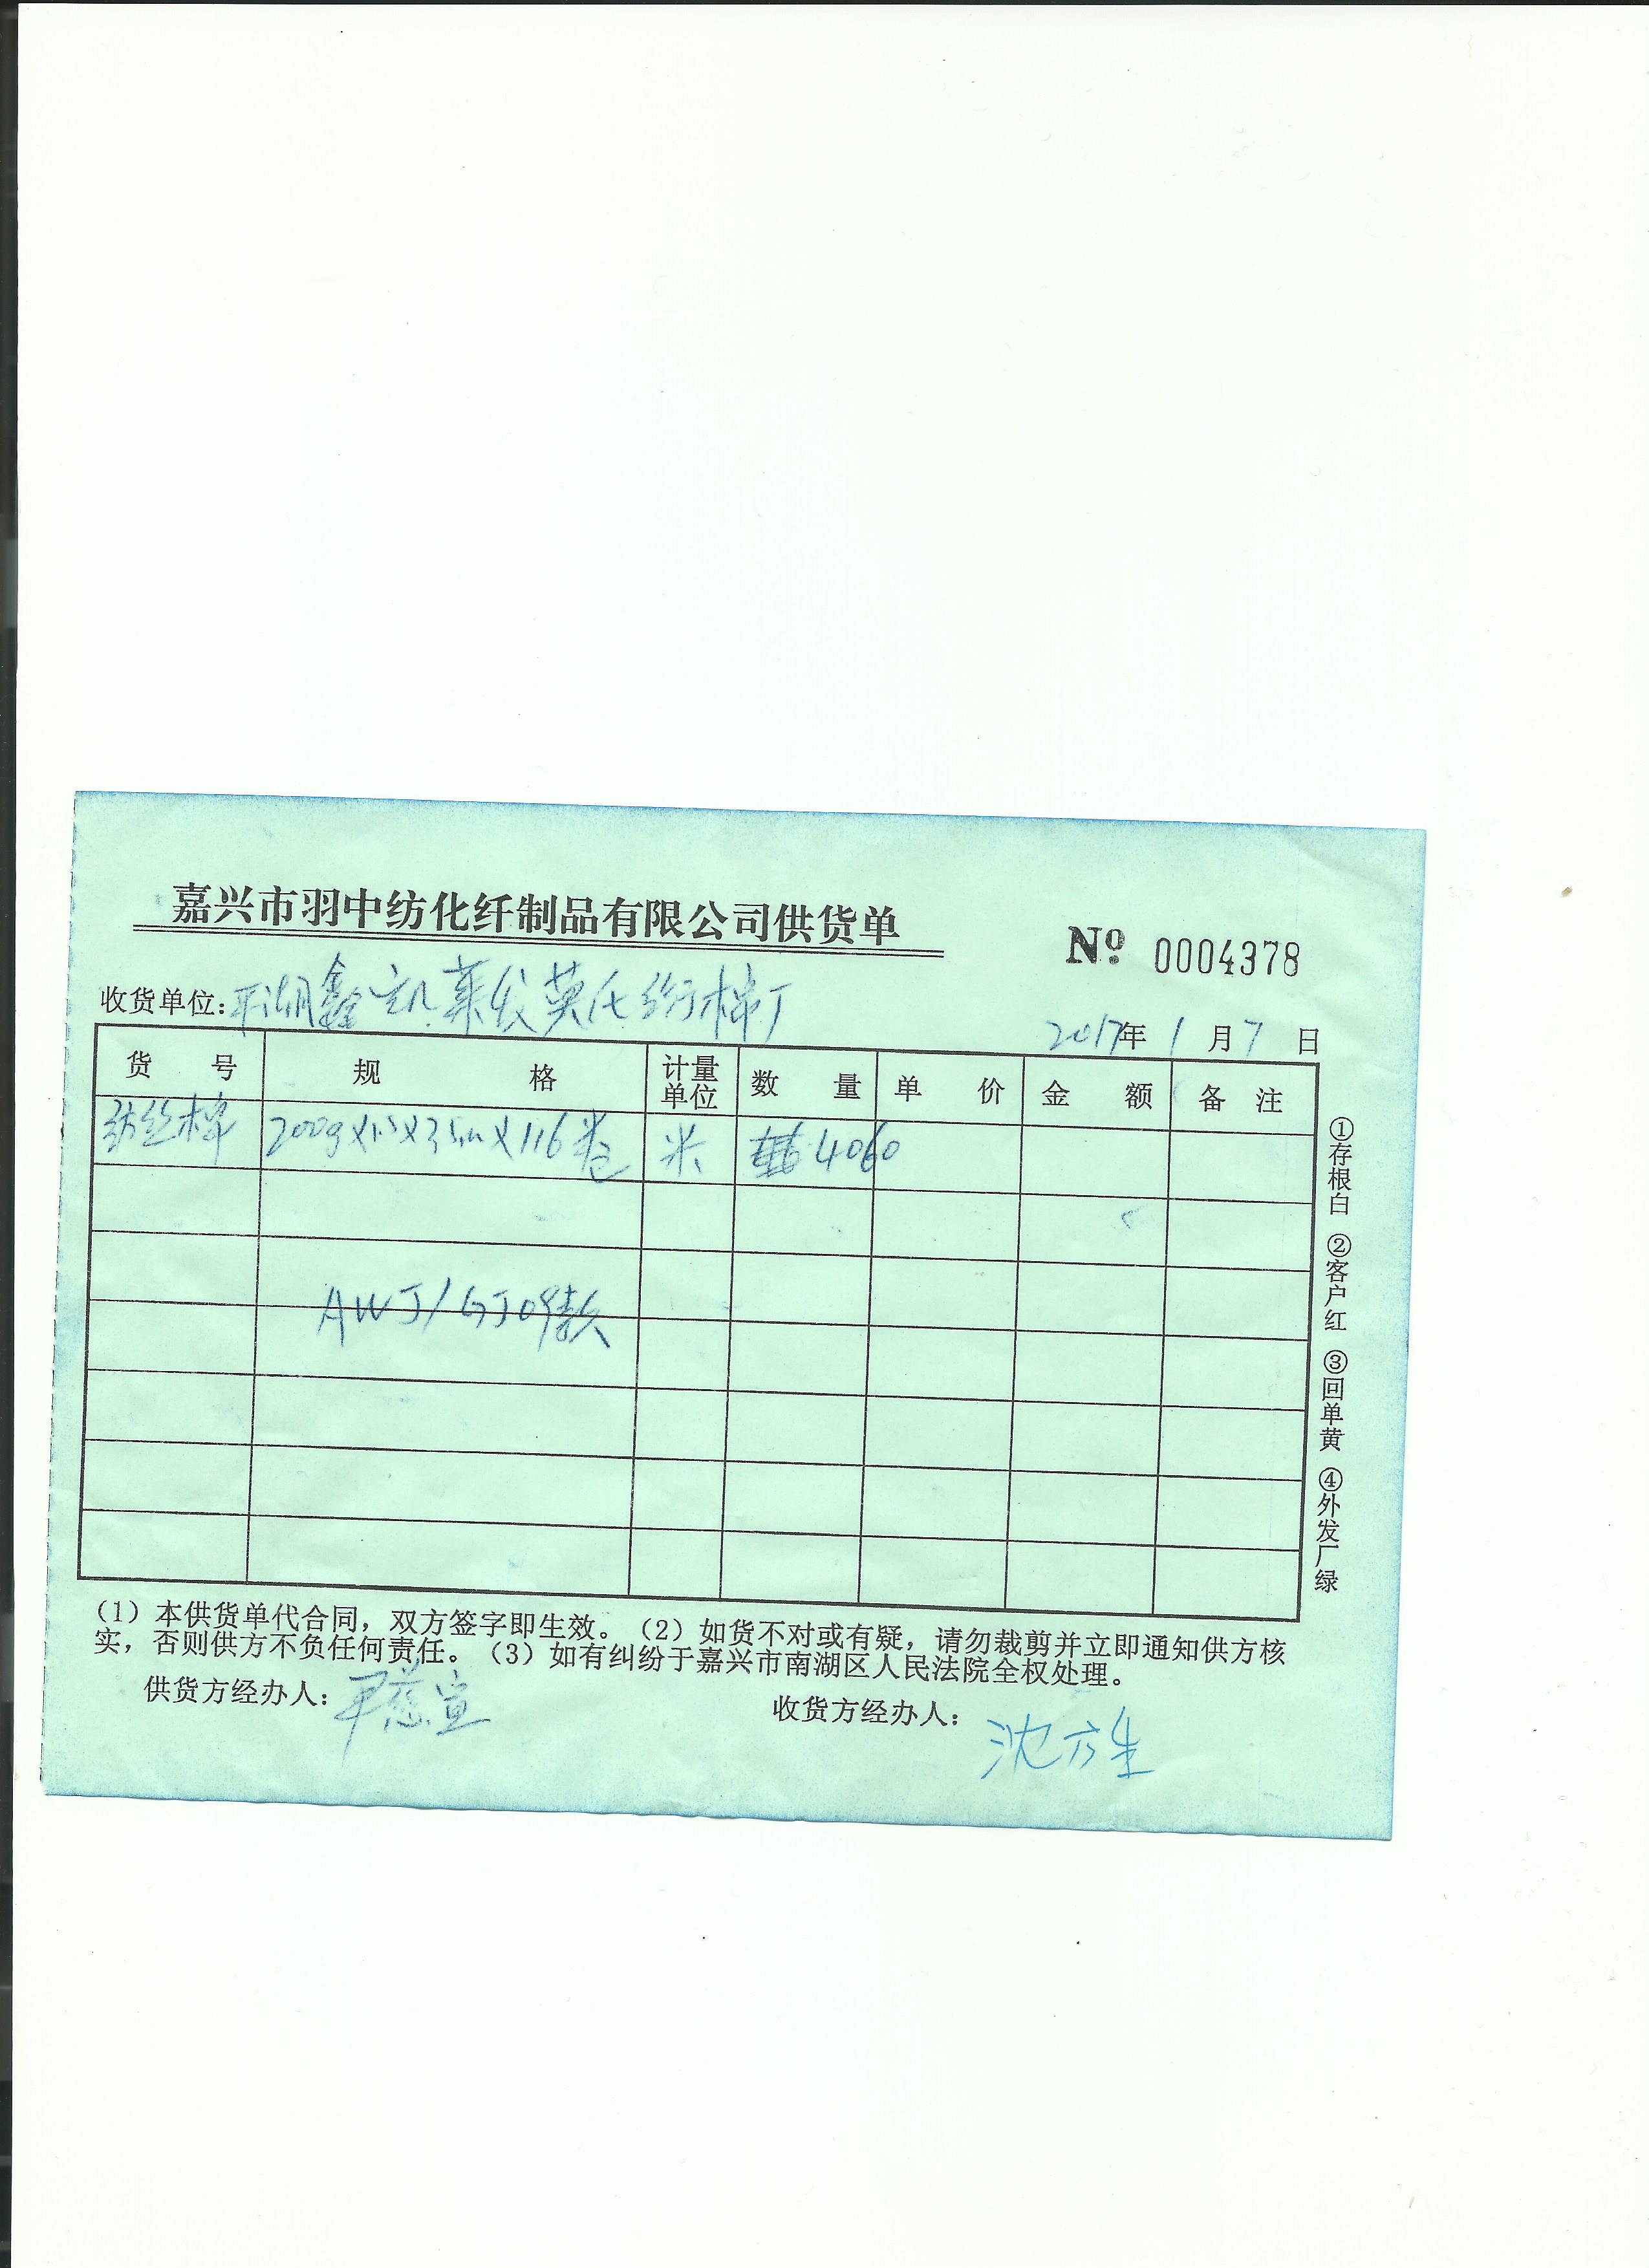 嘉兴市羽中纺化纤制品有限公司供货单
№ 0004378
收货单位:平湖鑫凯莱发英氏绗棉厂
2017年1月7日
货号 规格 计量单位 数量 单价 金额 备注
丝棉 200g×1.5×35m×116卷 米 4060
AWJ/GJ09款
①存根白 ②客户红 ③回单黄 ④外发厂绿
(1)本供货单代合同,双方签字即生效。(2)如货不对或有疑,请勿裁剪并立即通知供方核
实,否则供方不负任何责任。(3)如有纠纷于嘉兴市南湖区人民法院全权处理。
供货方经办人: 收货方经办人:沈方生